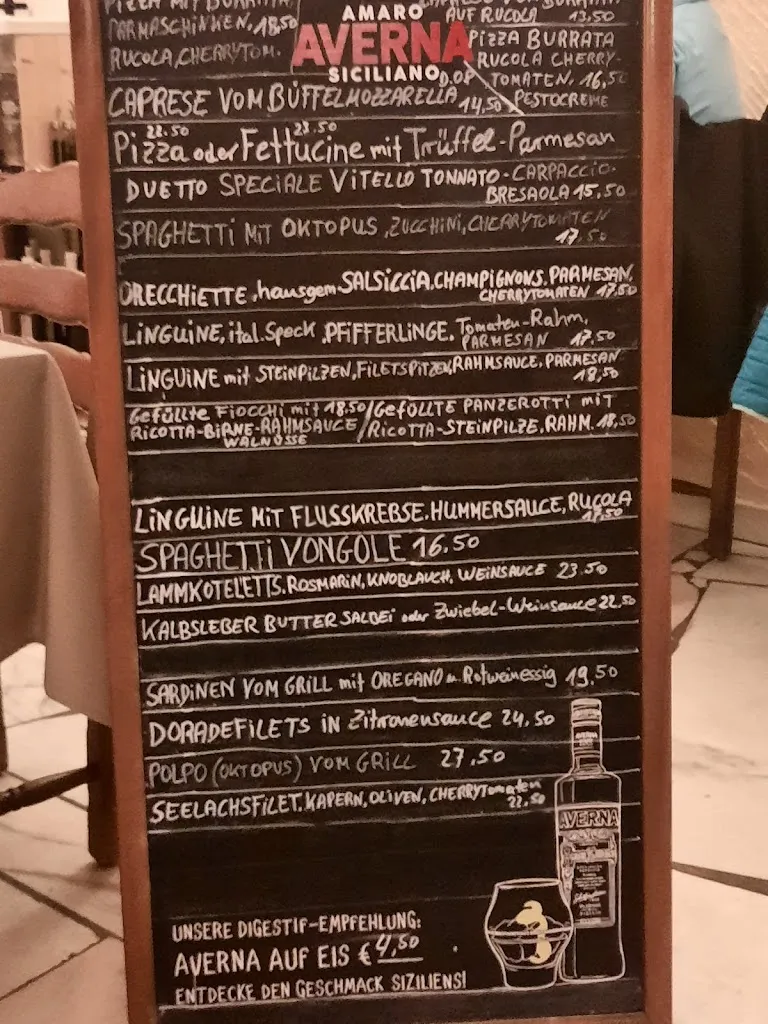 PIZZA MIT BURRATA,
PARMASCHINKEN, 18,50
RUCOLA, CHERRYTOM.
AMARO
AVERNA
SICILIANO
AUF RUCOLA 13,50
PIZZA BURRATA
RUCOLA CHERRY-
TOMATEN, 16,50
PESTOCREME
CAPRESE VOM BÜFFELMOZZARELLA D.O.P 14,50
22.50 23.50
Pizza oder Fettucine mit Trüffel-Parmesan
DUETTO SPECIALE VITELLO TONNATO-CARPACCIO-
BRESAOLA 15,50
SPAGHETTI MIT OKTOPUS, ZUCCHINI, CHERRYTOMATEN
17,50
ORECCHIETTE, hausgem. SALSICCIA, CHAMPIGNONS, PARMESAN,
CHERRYTOMATEN 17,50
LINGUINE, ital. Speck, PFIFFERLINGE, Tomaten-Rahm,
PARMESAN 17,50
LINGUINE mit STEINPILZEN, FILETSPITZEN, RAHMSAUCE, PARMESAN
18,50
Gefüllte FIOCCHI mit 18.50 / GEFÜLLTE PANZEROTTI MIT
RICOTTA-BIRNE-RAHMSAUCE / RICOTTA-STEINPILZE, RAHM. 18,50
WALNÜSSE
LINGUINE MIT FLUSSKREBSE, HUMMERSAUCE, RUCOLA
17,50
SPAGHETTI VONGOLE 16.50
LAMMKOTELETTS, ROSMARIN, KNOBLAUCH, WEINSAUCE 23.50
KALBSLEBER BUTTER SALBEI oder Zwiebel-Weinsauce 22,50
SARDINEN VOM GRILL mit OREGANO u. Rotweinessig 19,50
DORADEFILETS IN Zitronensauce 24,50
POLPO (OKTOPUS) VOM GRILL 27,50
SEELACHSFILET, KAPERN, OLIVEN, CHERRYTomaten
22,50
AVERNA
UNSERE DIGESTIF-EMPFEHLUNG:
AVERNA AUF EIS € 4,50
ENTDECKE DEN GESCHMACK SIZILIENS!